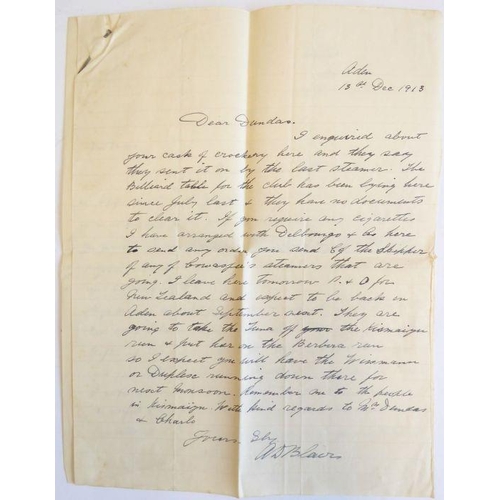 Aden
13th Dec 1913
Dear Dundas.
I enquired about
your cask of crockery here and they say
they sent it on by the last steamer. The
Billiard table for the club has been lying here
since July last & they have no documents
to clear it. If you require any cigarettes
I have arranged with Delbourgo & Co here
to send any order you send of the Skipper
of any of Cowasjee's steamers that are
going. I leave here tomorrow P. & O for
New Zealand and expect to be back in
Aden about September next. They are
going to take the Tuna off your the Kismaizu
run & put her on the Berbera run
so I expect you will have the Wissmann
or Duplese running down there for
next monsoon. Remember me to the people
in Kismaizu With kind regards to Mrs Dundas
& Charls
Yours